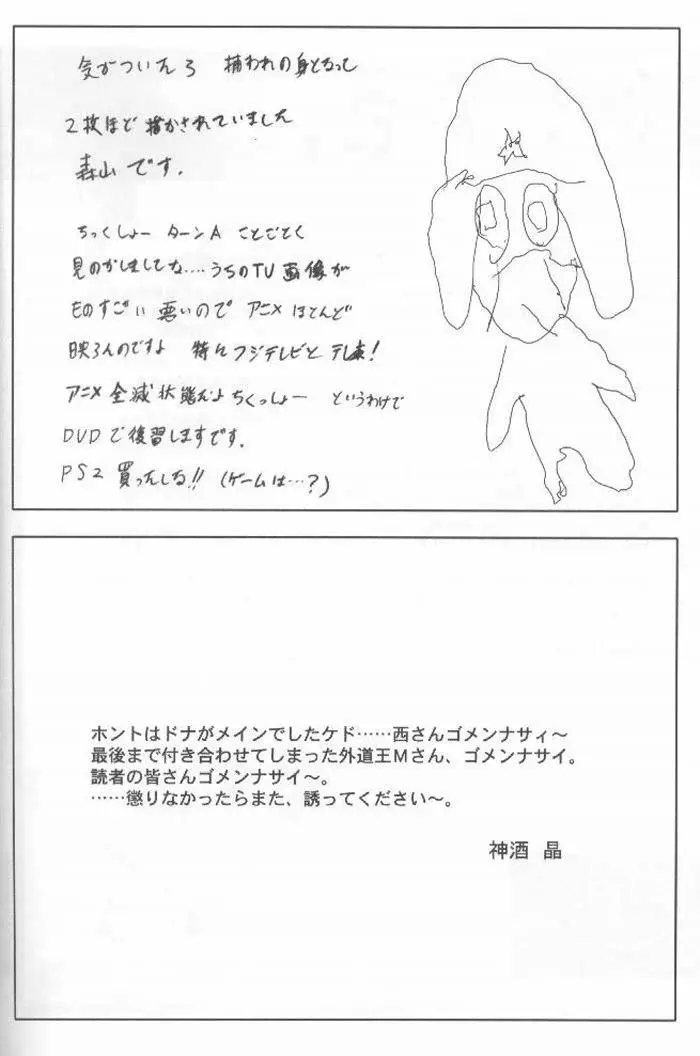 気がついたら 捕われの身となって
2枚ほど描かされていました
森山です.
ちっくしょー ターンA ことごとく
見のがしましてね....うちのTV画像が
ものすごい悪いのでアニメほとんど
映らんのですよ 特にフジテレビとテレ東!
アニメ全滅状態だよちくっしょー というわけで
DVDで復習しますです.
PS2買ったしな!! (ゲームは…?)
ホントはドナがメインでしたケド……西さんゴメンナサィ～
最後まで付き合わせてしまった外道王Mさん、ゴメンナサイ。
読者の皆さんゴメンナサイ～。
……懲りなかったらまた、誘ってください～。
神酒 晶